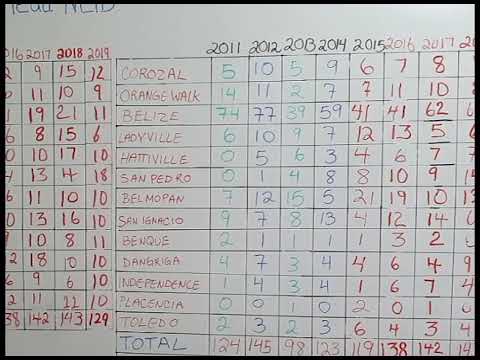 2017 2018 2019
9 15 12
11 10 9
19 21 11
8 15 6
10 17 10
13 4 18
11 10 10
13 16 10
10 8 11
18 10 10
9 6 10
2 11 11 10
38 142 143 129
2011 2012 2013 2014 2015 2016 2017
COROZAL 5 10 5 9 6 7 8
ORANGE WALK 14 11 2 7 7 11 10
BELIZE 74 77 39 59 41 41 62
LADYVILLE 6 10 9 7 12 13 5
HATTIVILLE 0 5 6 3 4 6 7
SAN PEDRO 0 1 4 8 8 10 9
BELMOPAN 7 12 15 5 21 19 10
SAN IGNACIO 9 7 8 13 4 12 14
BENQUE 2 1 1 1 1 3 2
DANGRIGA 4 7 3 4 4 6 4
INDEPENDENCE 1 4 3 4 1 6 7
PLACENCIA 0 0 1 0 2 0 1
TOLEDO 2 3 2 3 6 4 3
TOTAL 124 145 98 123 119 138 142